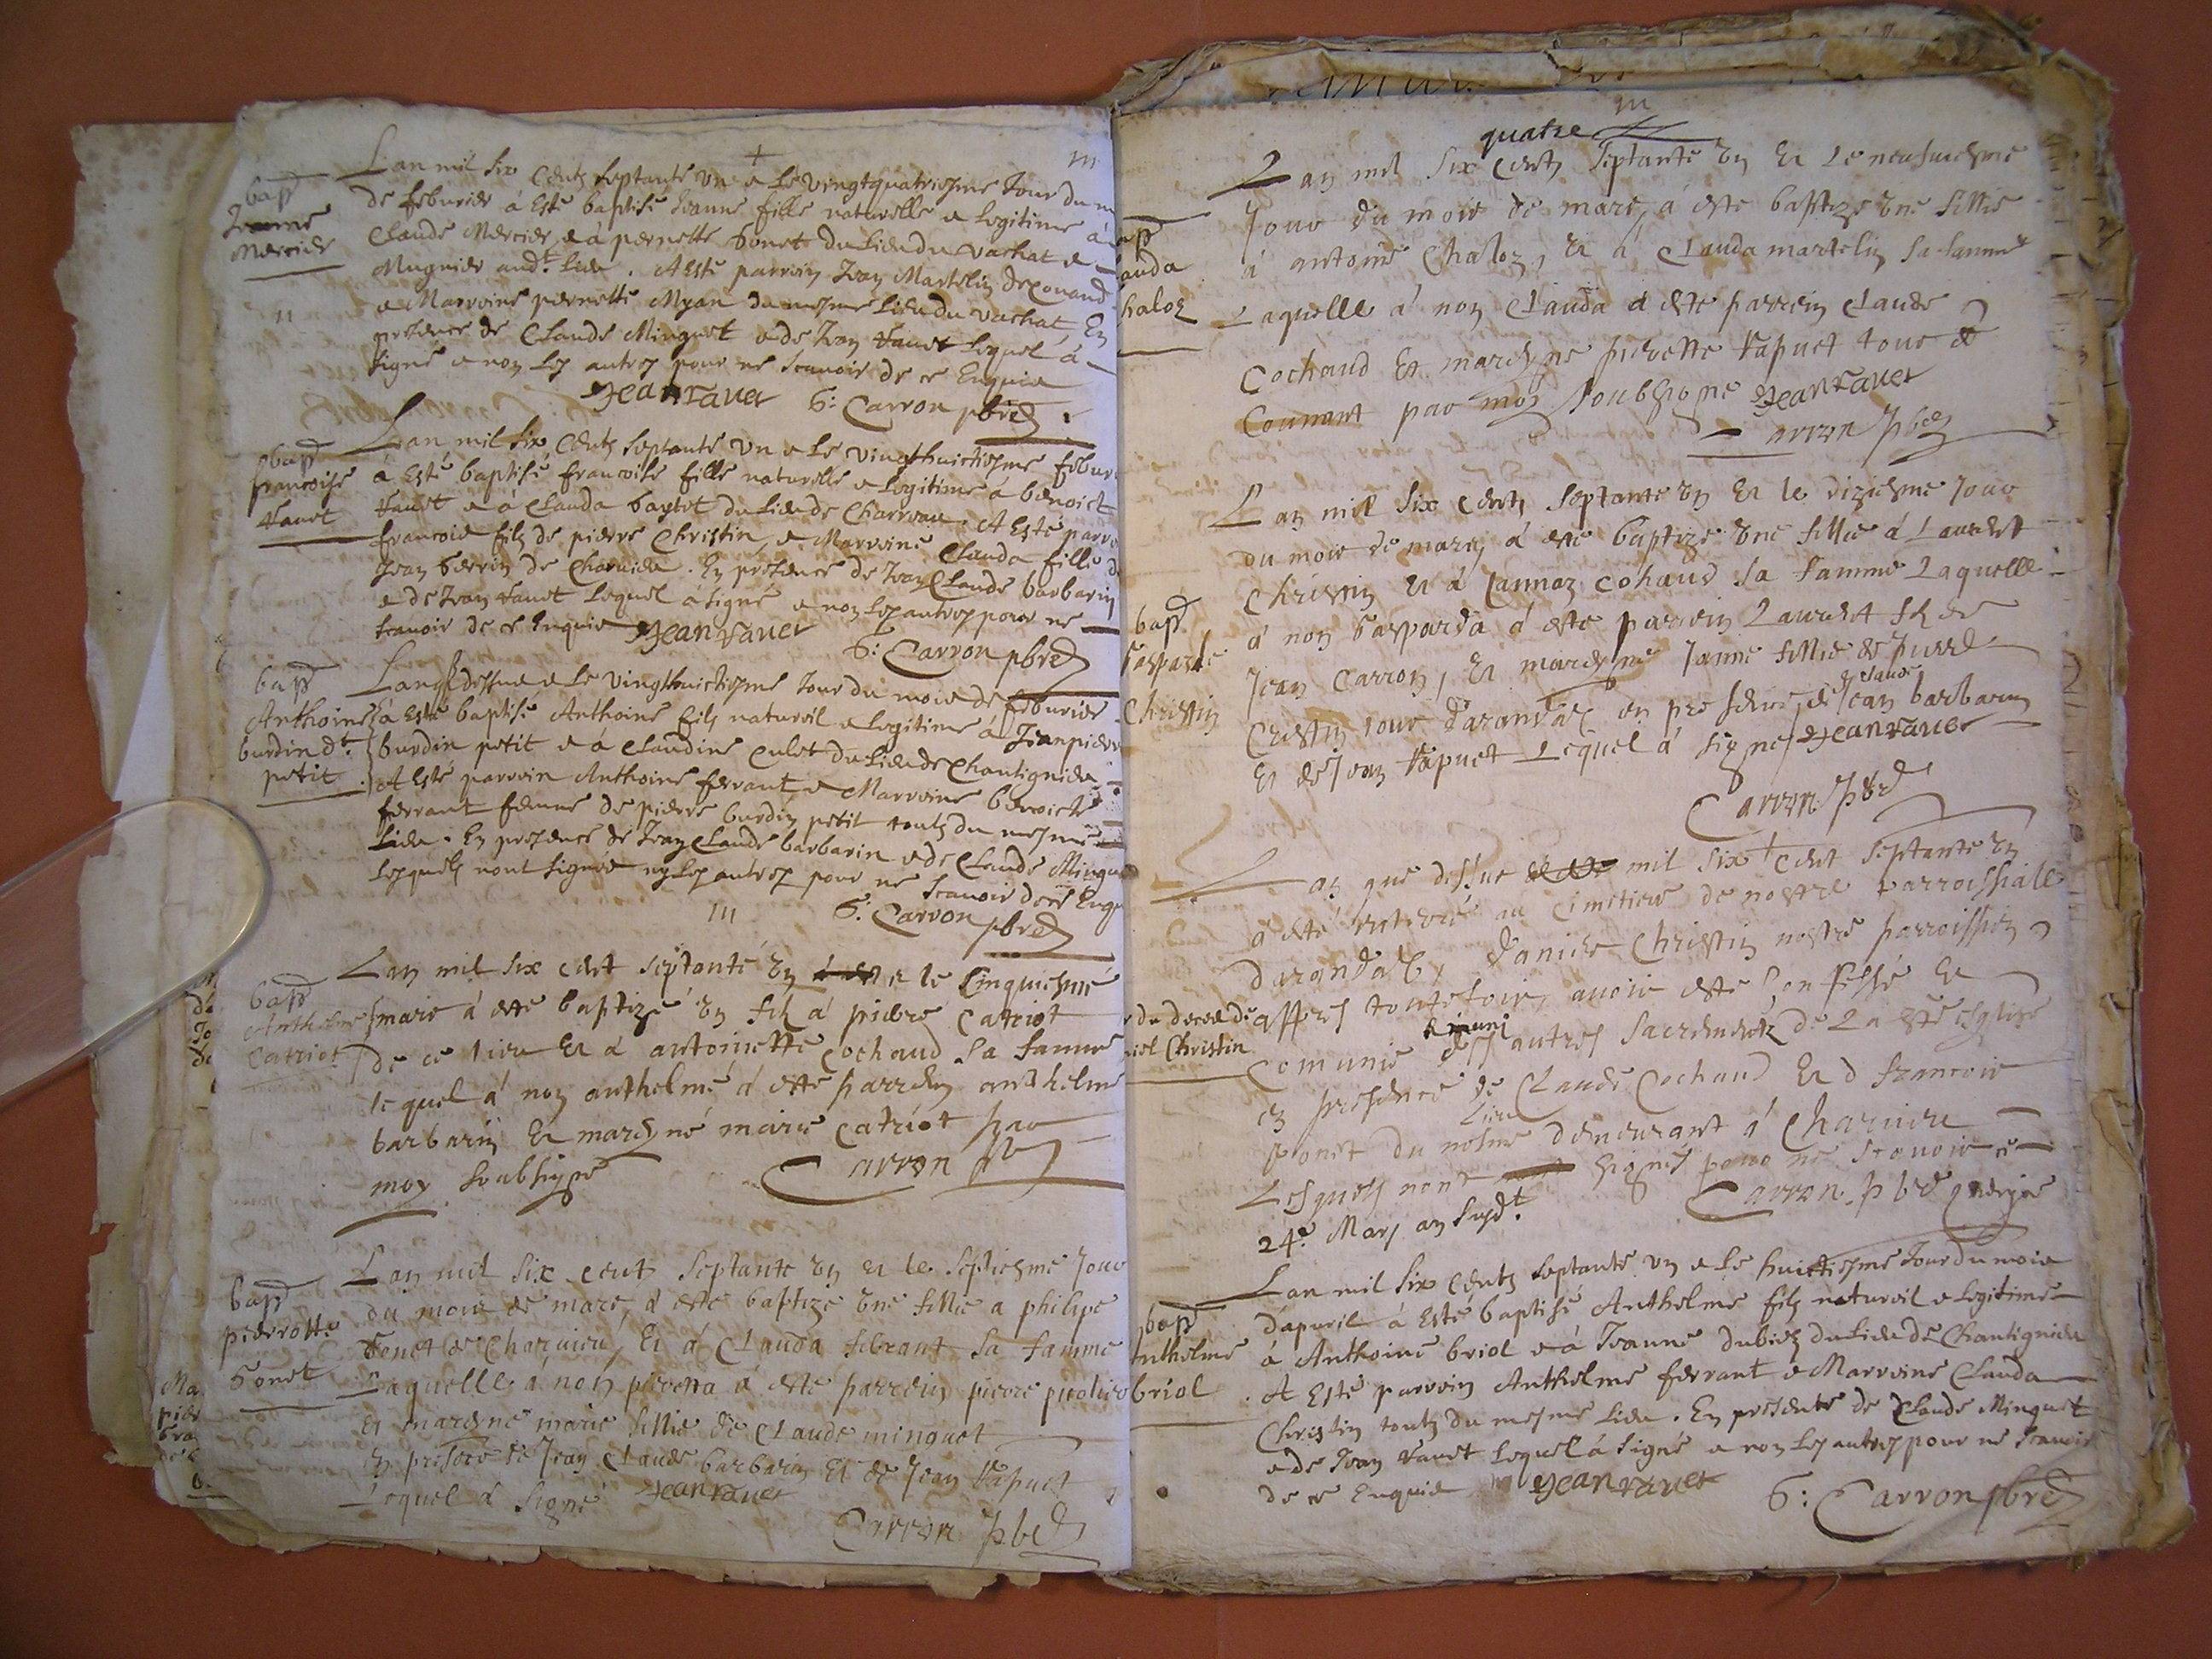 bapt
Jeanne
Mercier
Lan mil six centz septante un e le vingtquatriesme Jour du
de feburier à Esté baptisé Jeanne fille naturelle e legitime à
Claude Mercier, e à pernette bonet du lieu du vachat e
Mugnier audt lieu. A Esté parrein Jean Martelin de
e Marreine pernette Myan du mesme lieu du vachat En
presence de Claude Minguet e de Jean tavet lequel à
signé e non les autres pour ne scavoir de ce Enquis
Jean tavet B: Carron pbre
bapt
francoise
tavet
Lan mil six centz septante un e le vingthuictiesme
à Esté baptisé francoise fille naturelle e legitime à benoict
tavet e à Clauda du lieu de Charveau. A Esté
francois filz de pierre Christin, e Marreine Clauda fille
Jean berrin de. En presence de Jean Claude barbarin
e de Jean tavet lequel à signé e non les autres pour ne
scavoir de ce Enquis Jean tavet
B: Carron pbre
bapt
Anthoine
burdin dt
petit
Lan susdessus e le vingthuictiesme Jour du mois de feburier
à Esté baptisé Anthoine filz naturel e legitime à Jean
burdin petit e à Claudine Culet du lieu de Chantignieu
A Esté parrein Anthoine ferrant e Marreine benoicte
ferrant femme de pierre burdin petit toutz du mesme
lieu. En presence de Jean Claude barbarin e de Claude
lesquelz nont signés ny les autres pour ne
scavoir de ce
III B: Carron pbre
bapt
Anthelme
Catriot
Lan mil six cent septante un e le Cinquiesme
mars à esté baptizé un filz à pierre Catriot
de ce lieu Et à antoinette Cochaud sa famme
lequel à nom anthelme à esté parrein anthelme
barbarin Et mareyne marie Catriot par
moy soubsigné Carron pbre
bapt
pierrotte
bonet
Lan mil six centz septante un Et le septiesme Jour
du mois de mars à esté baptizé une fillie a philipe
bonet de Charvieu, Et à Clauda ferrant sa famme
Laquelle à nom pierotta à esté parrein pierre
Et mareyne marie fillie de Claude minguet
En presence de Jean Claude barbarin Et de Jean tapuet
Lequel à signé Jean tavet
Carron pbre
III
quatre
Lan mil six centz septante un Et le neufuiesme
Jour du mois de mars, à esté baptizé une fillie
à antoine Chaloz, Et à Clauda martelin sa famme
Laquelle à nom Clauda à esté parrein Claude
Cochaud Et mareyne pierette tapuet tous de
Counant par moy soubsigné Jean tavet
Carron pbre
bapt
Gasparde
Christin
Lan mil six centz septante un Et le diziesme Jour
du mois de mars, à esté baptizé une fillie à Laurent
Christin Et à Cohaud sa famme Laquelle
à nom Gasparda à esté parrein Laurent filz de
Jean Carron, Et mareyne Janne fillie de
Crestin tous darandas en presence de Jean Claude barbarin
Et de Jean tapuet Lequel à signé Jean tavet
Carron pbre
Lan que dessus mil six cent septante un
à esté enterré au Cimitiere de nostre parroissiale
darandas, daniel Christin nostre parroissien
appres toutefois, avoir esté Confessé Et
Comunié Et muni des autres sacrementz de La ste esglise
en presence de Claude Cochaud Et d francois
bonet du mesme lieu demeurant à Charvieu
Lesquelz nont signés pour ne scavoir
24e Mars an susdt. Carron pbre
bapt
Anthelme
briol
Lan mil six centz septante un e le huictiesme Jour du mois
dapvril à Esté baptisé Anthelme filz naturel e legitime
à Anthoine briol e à Jeanne dubiez du lieu de Chantignieu
. A Esté parrein Anthelme ferrant e Marreine Clauda
Christin toutz du mesme lieu. En presence de Claude Minguet
e de Jean tavet lequel à signé e non les autres pour ne scavoir
de ce Enquis Jean tavet B: Carron pbre